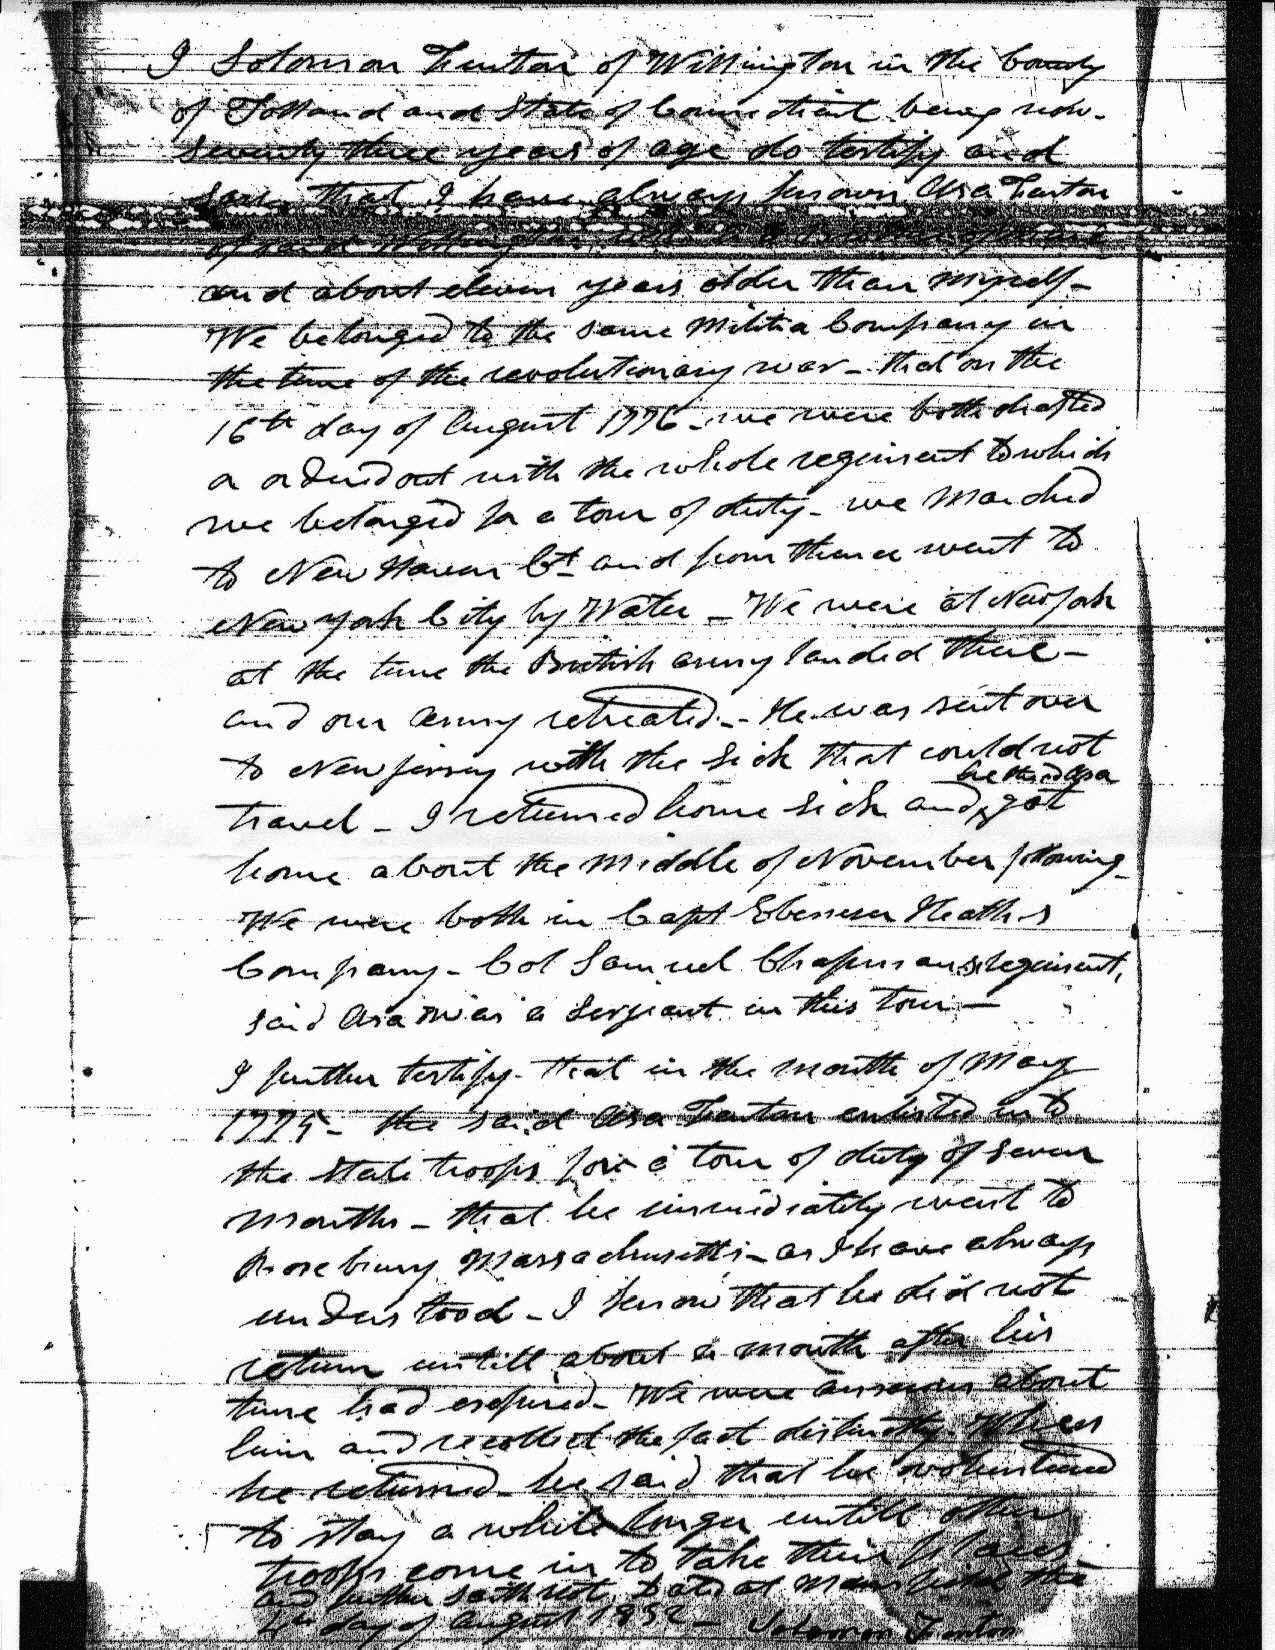 I Solomon Fenton of Willington in the County
of Tolland and State of Connecticut being now
seventy three years of age do testify and
say that I have always known Asa Fenton
of said Willington
and about eleven years older than myself -
We belonged to the same Militia Company in
the time of the revolutionary war - that on the
16th day of August 1776 - we were both drafted
or orderd out with the whole regiment to which
we belonged for a tour of duty - we marched
to New Haven Ct and from thence went to
New York City by Water - We were at New York
at the time the British army landed there -
and our army retreated - He was sent over
to New Jersey with the sick that could not
travel - I returned home sick and he the sd Asa got
home about the middle of November following -
We were both in Capt Ebenezer Heath's
Company - Col Samuel Chapmans regiment,
said Asa was a Sergeant in this tour -
I further testify - that in the month of May
1775 - the said Asa Fenton enlisted into
the State troops for a tour of duty of seven
months - that he immediately went to
Roxebury Massachusetts - as I have always
understood - I know that he did not
return untill about a month after his
time had expired - We were anxious about
him and recollect the fact distinctly - When
he returned - he said that he volunteered
to stay a while longer untill other
troops come in to take their places -
and further saith not. Dated at Mansfield the
4th day of August 1832 - Solomon Fenton